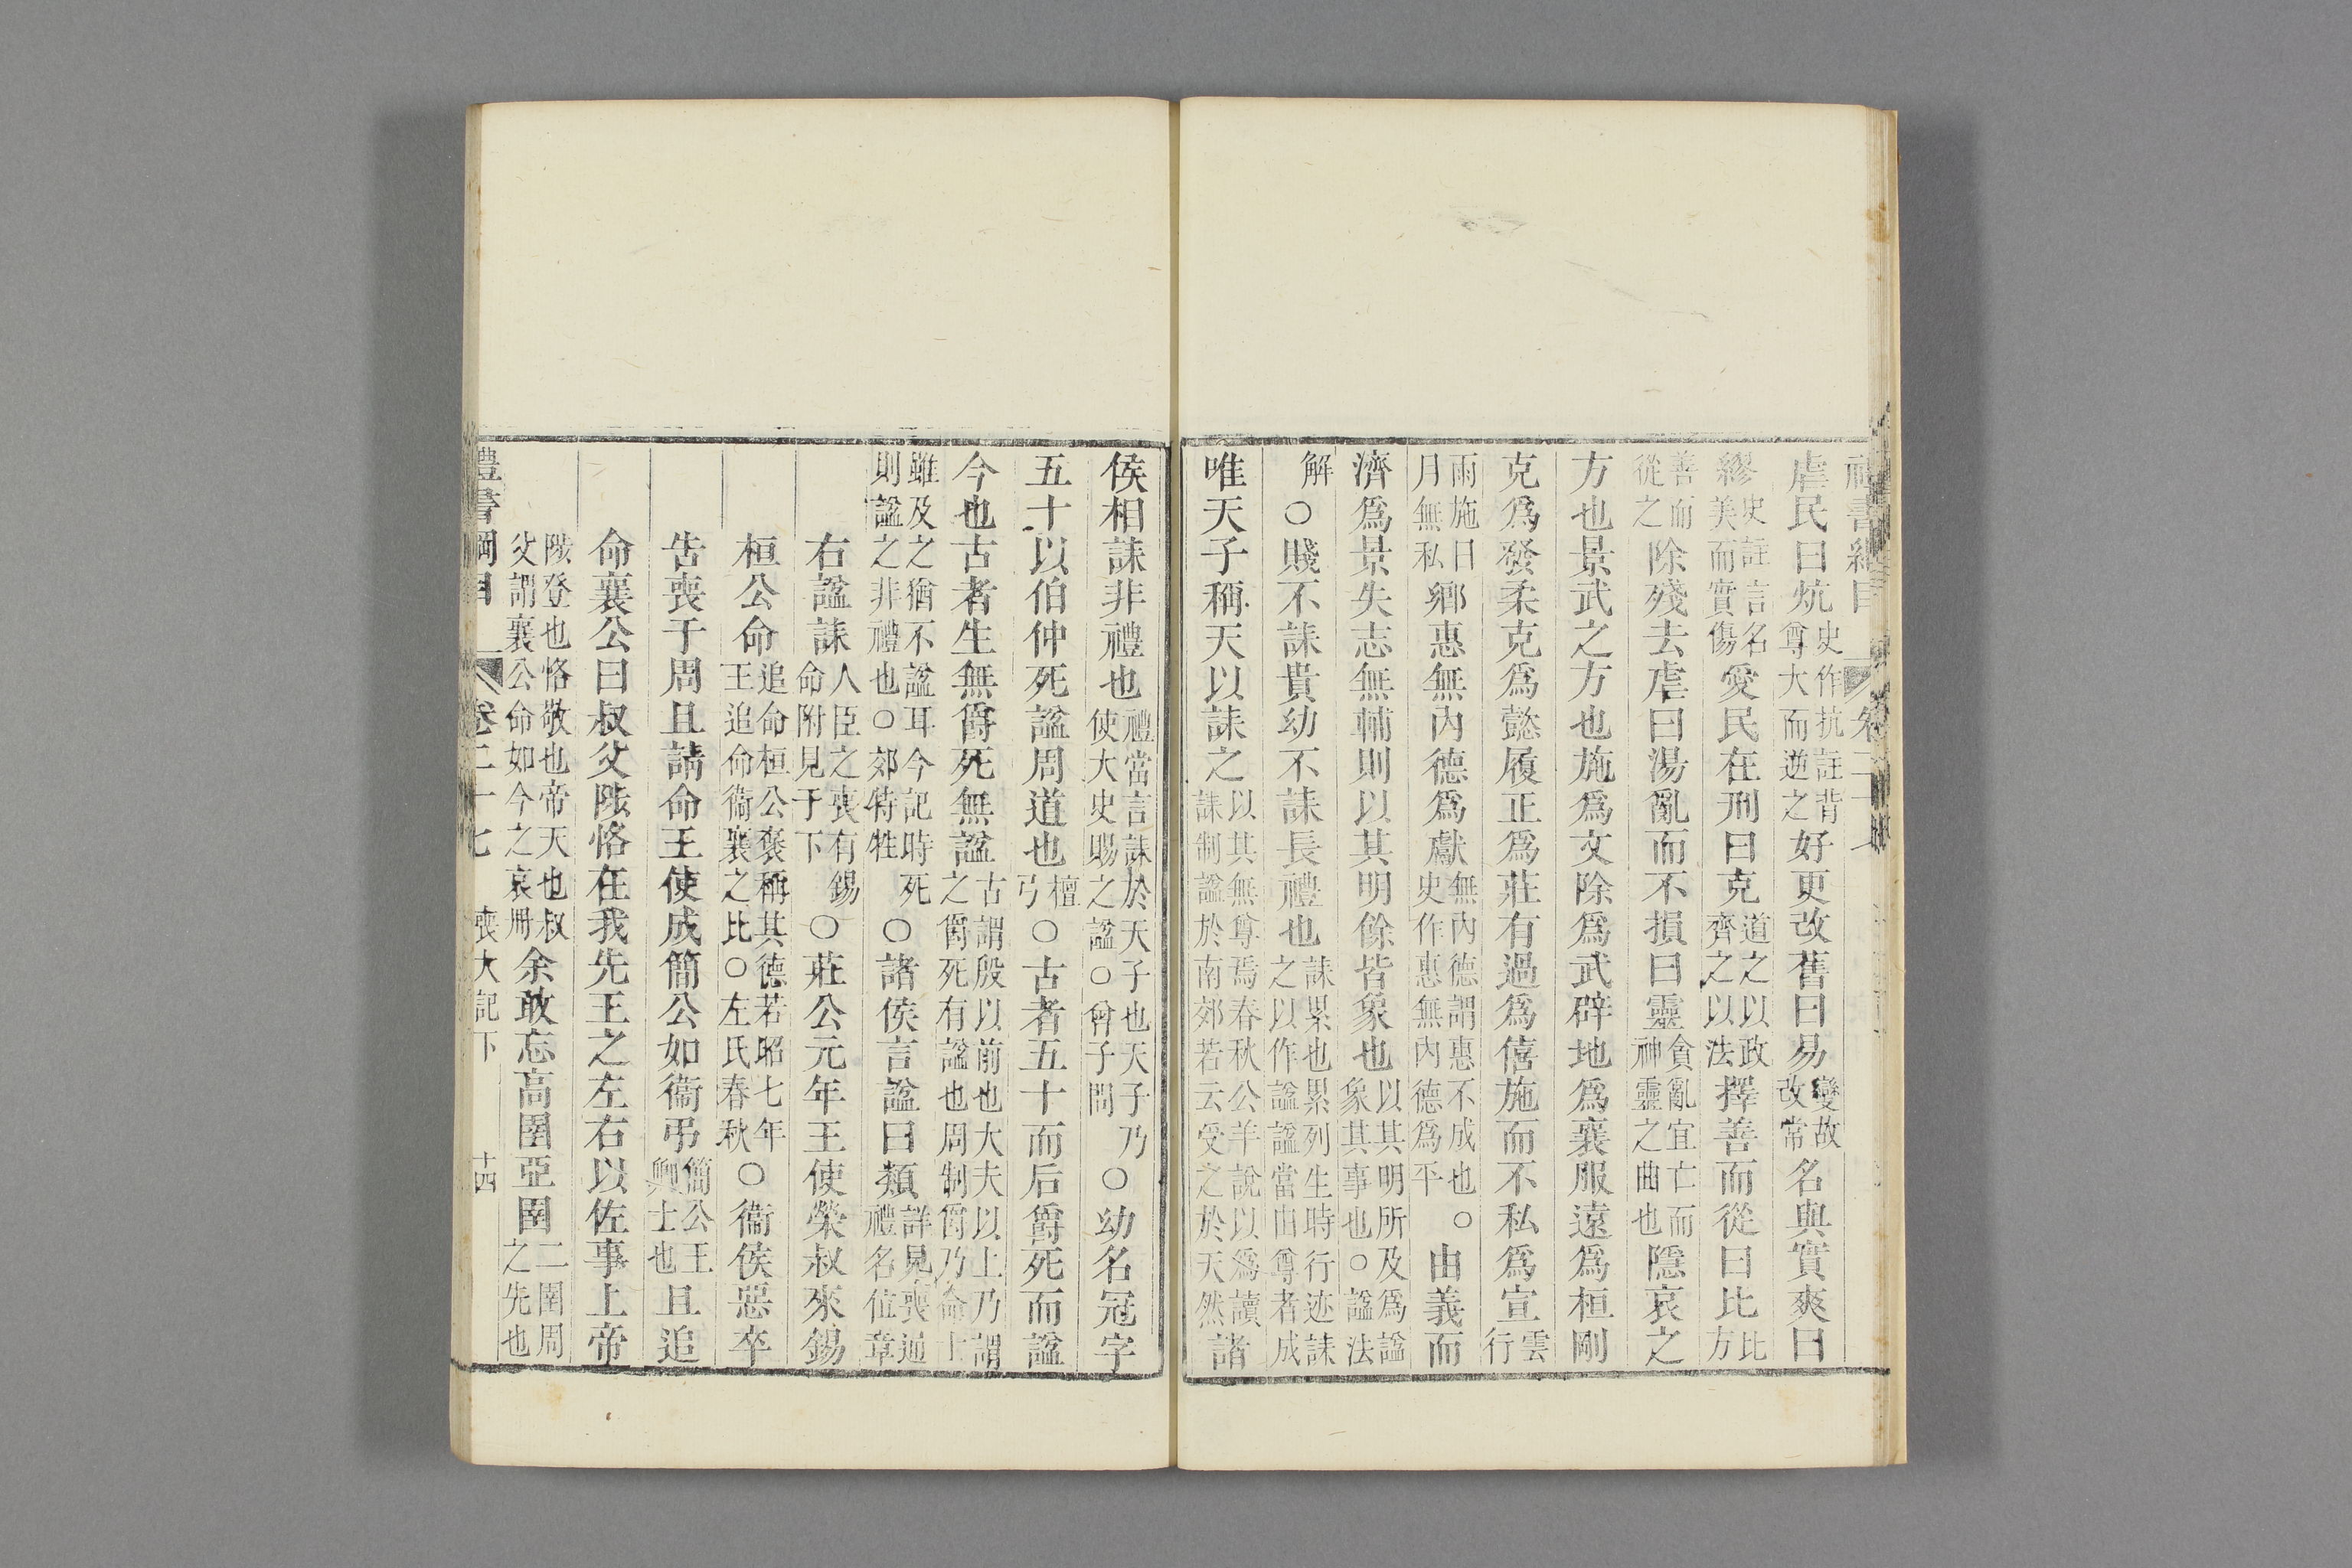 虐民曰炕史作抗註背尊大而逆之好更改舊曰易變故改常名與實爽曰
繆史註言名美而實傷愛民在刑曰克道之以政齊之以法擇善而從曰比比方
善而從之除殘去虐曰湯亂而不損曰靈貪亂宜亡而神靈之曲也隱哀之
方也景武之方也施爲文除爲武辟地爲襄服遠爲桓剛
克爲發柔克爲懿履正爲莊有過爲僖施而不私爲宣雲行
雨施日月無私鄕惠無內德爲獻無內德謂惠不成也史作惠無內德爲平○由義而
濟爲景失志無輔則以其明餘皆象也以其明所及爲諡象其事也○諡法
解○賤不誄貴幼不誄長禮也誄累也累列生時行迹誄之以作諡諡當由尊者成
唯天子稱天以誄之以其無尊焉春秋公羊說以爲讀誄制諡於南郊若云受之於天然諸
侯相誄非禮也禮當言誄於天子也天子乃使大史賜之諡○曾子問○幼名冠字
五十以伯仲死諡周道也檀弓○古者五十而后爵死而諡
今也古者生無爵死無諡古謂殷以前也大夫以上乃謂之爵死有諡也周制爵乃命士
雖及之猶不諡耳今記時死則諡之非禮也○郊特牲○諸侯言諡曰類詳見喪通禮名位章
右諡誄人臣之喪有錫命附見于下○莊公元年王使榮叔來錫
桓公命追命桓公褒稱其德若昭七年王追命衞襄之比○左氏春秋○衞侯惡卒
告喪于周且請命王使成簡公如衞弔簡公王卿士也且追
命襄公曰叔父陟恪在我先王之左右以佐事上帝
陟登也恪敬也帝天也叔父謂襄公命如今之哀册余敢忘高圉亞圉二圉周之先也
禮書綱目 卷二十七 喪大記下 十四